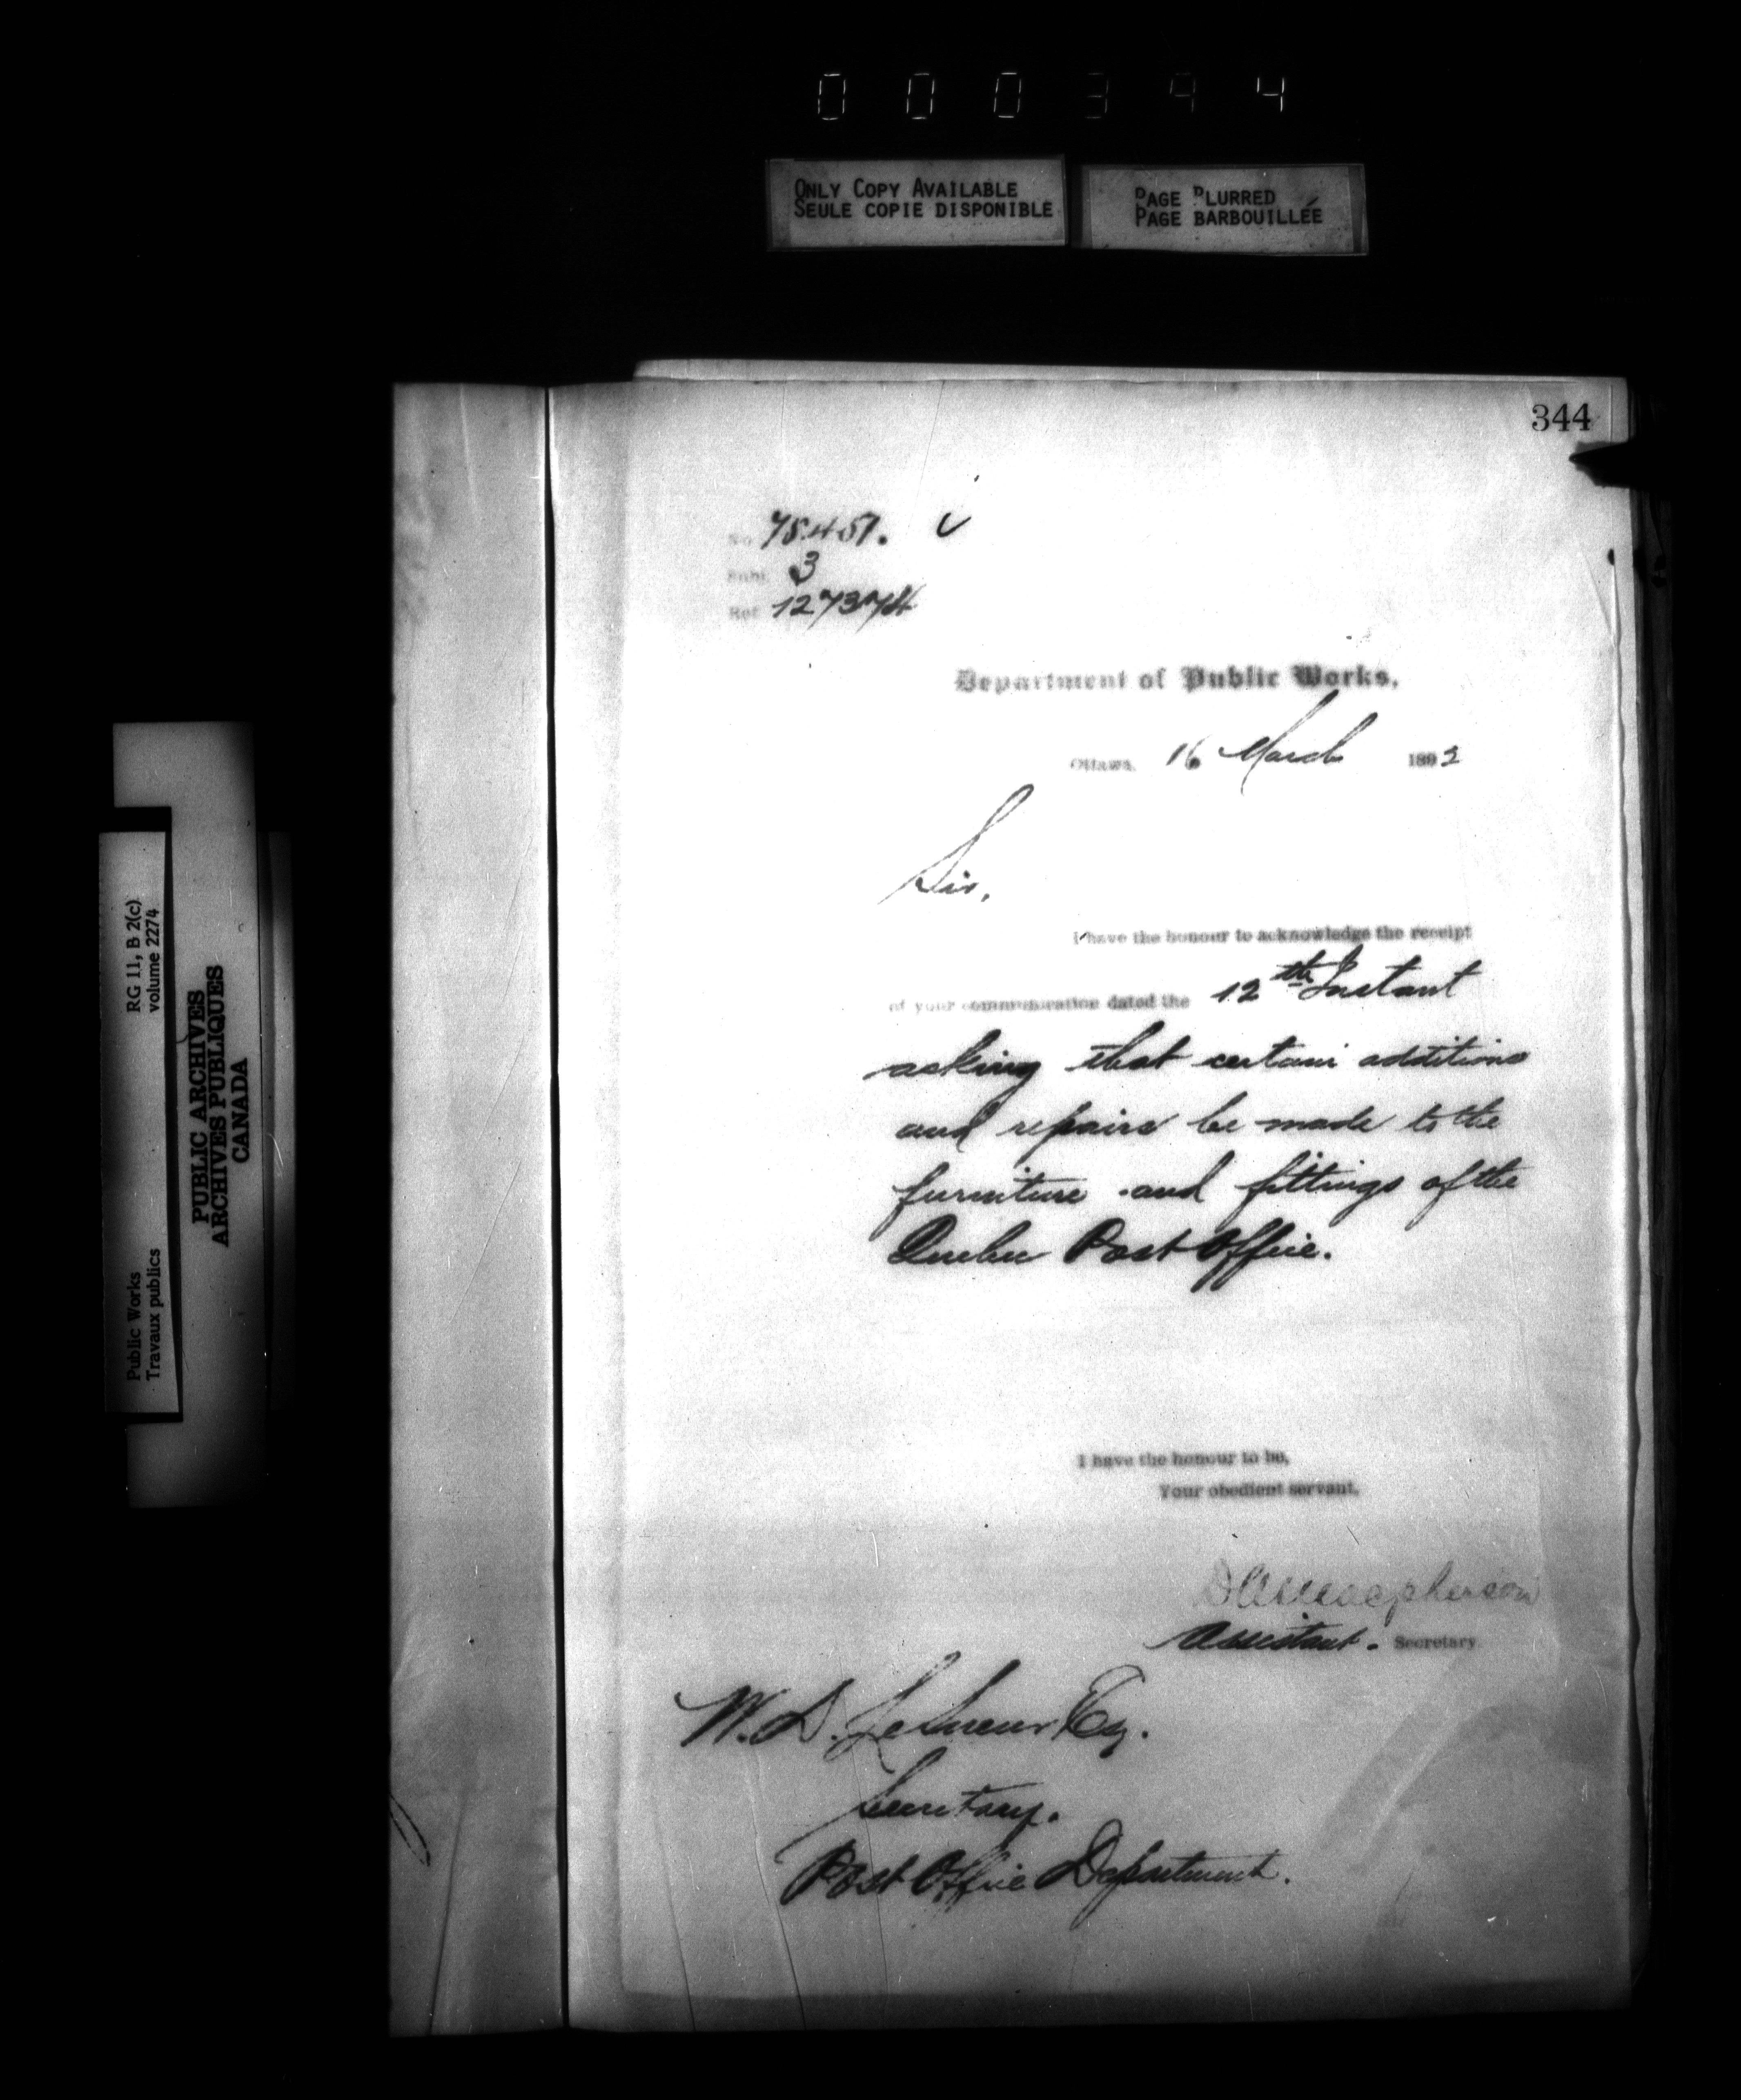 000394
ONLY COPY AVAILABLE
SEULE COPIE DISPONIBLE
PAGE BLURRED
PAGE BARBOUILLÉE
344
No. 75451.
Subj. 3
Ref. 127374
Department of Public Works,
Ottawa, 16 March 1892
Sir,
I have the honour to acknowledge the receipt
of your communication dated the 12th Instant
asking that certain additions
and repairs be made to the
furniture and fittings of the
Quebec Post Office.
I have the honour to be,
Your obedient servant,
D A Macpherson
Assistant. Secretary
W. D. LeSueur Esq.
Secretary.
Post Office Department.
RG 11, B 2(c)
volume 2274
Public Works
Travaux publics
PUBLIC ARCHIVES
ARCHIVES PUBLIQUES
CANADA